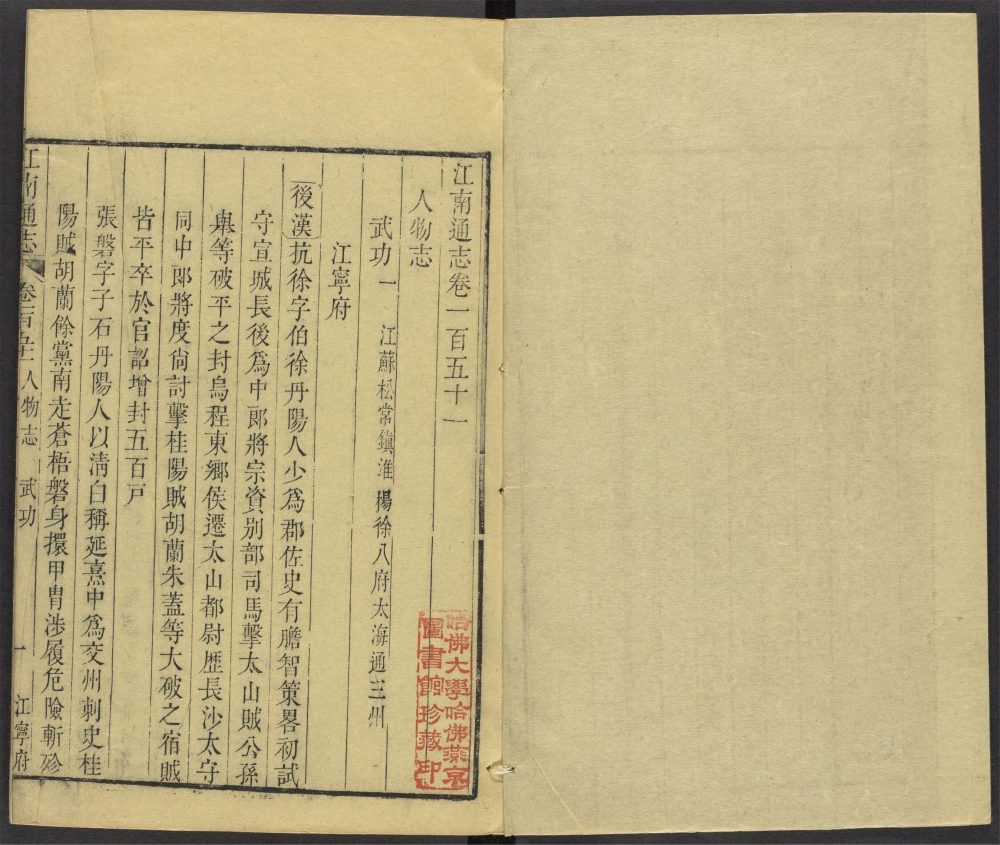 江南通志卷一百五十一
人物志
武功一 江蘇松常鎮淮楊徐八府太海通三州
江寧府
後漢抗徐字伯徐丹陽人少爲郡佐史有膽智策畧初試
守宣城長後爲中郎將宗資別部司馬擊太山賊公孫
舉等破平之封烏程東鄉侯遷太山都尉歷長沙太守
同中郎將度尙討擊桂陽賊胡蘭朱蓋等大破之宿賊
皆平卒於官詔增封五百戸
張磐字子石丹陽人以淸白稱延熹中爲交州刺史桂
陽賊胡蘭餘黨南走蒼梧磐身擐甲冑涉履危險斬殄
江南通志 卷一百五十一 人物志 武功 一 江寧府
哈佛大學哈佛燕京
圖書館珍藏印